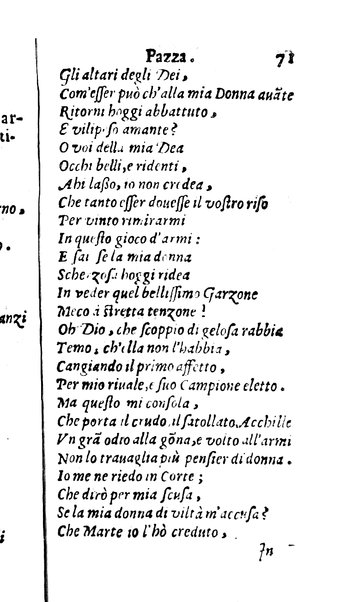 Pazza. 71
Gli altari degli Dei,
Com'esser può ch'alla mia Donna auãte
Ritorni hoggi abbattuto,
E vilipeso amante?
O voi della mia Dea
Occhi belli, e ridenti,
Ahi lasso, io non credea,
Che tanto esser douesse il vostro riso
Per vinto rimirarmi
In questo gioco d'armi:
E sai se la mia donna
Scherzosa hoggi ridea
In veder quel bellissimo Garzone
Meco a stretta tenzone!
Oh Dio, che scoppio di gelosa rabbia
Temo, ch'ella non l'habbia,
Cangiando il primo affetto,
Per mio riuale, e suo Campione eletto.
Ma questo mi consola,
Che porta il crudo, il satollato, Acchille
Vn grã odio alla gõna, e volto all'armi
Non lo trauaglia più pensier di donna.
Io me ne riedo in Corte;
Che dirò per mia scusa,
Se la mia donna di viltà m'accusa?
Che Marte io l'hò creduto,
In
ar-
ti-
rno,
o.
anzi
i